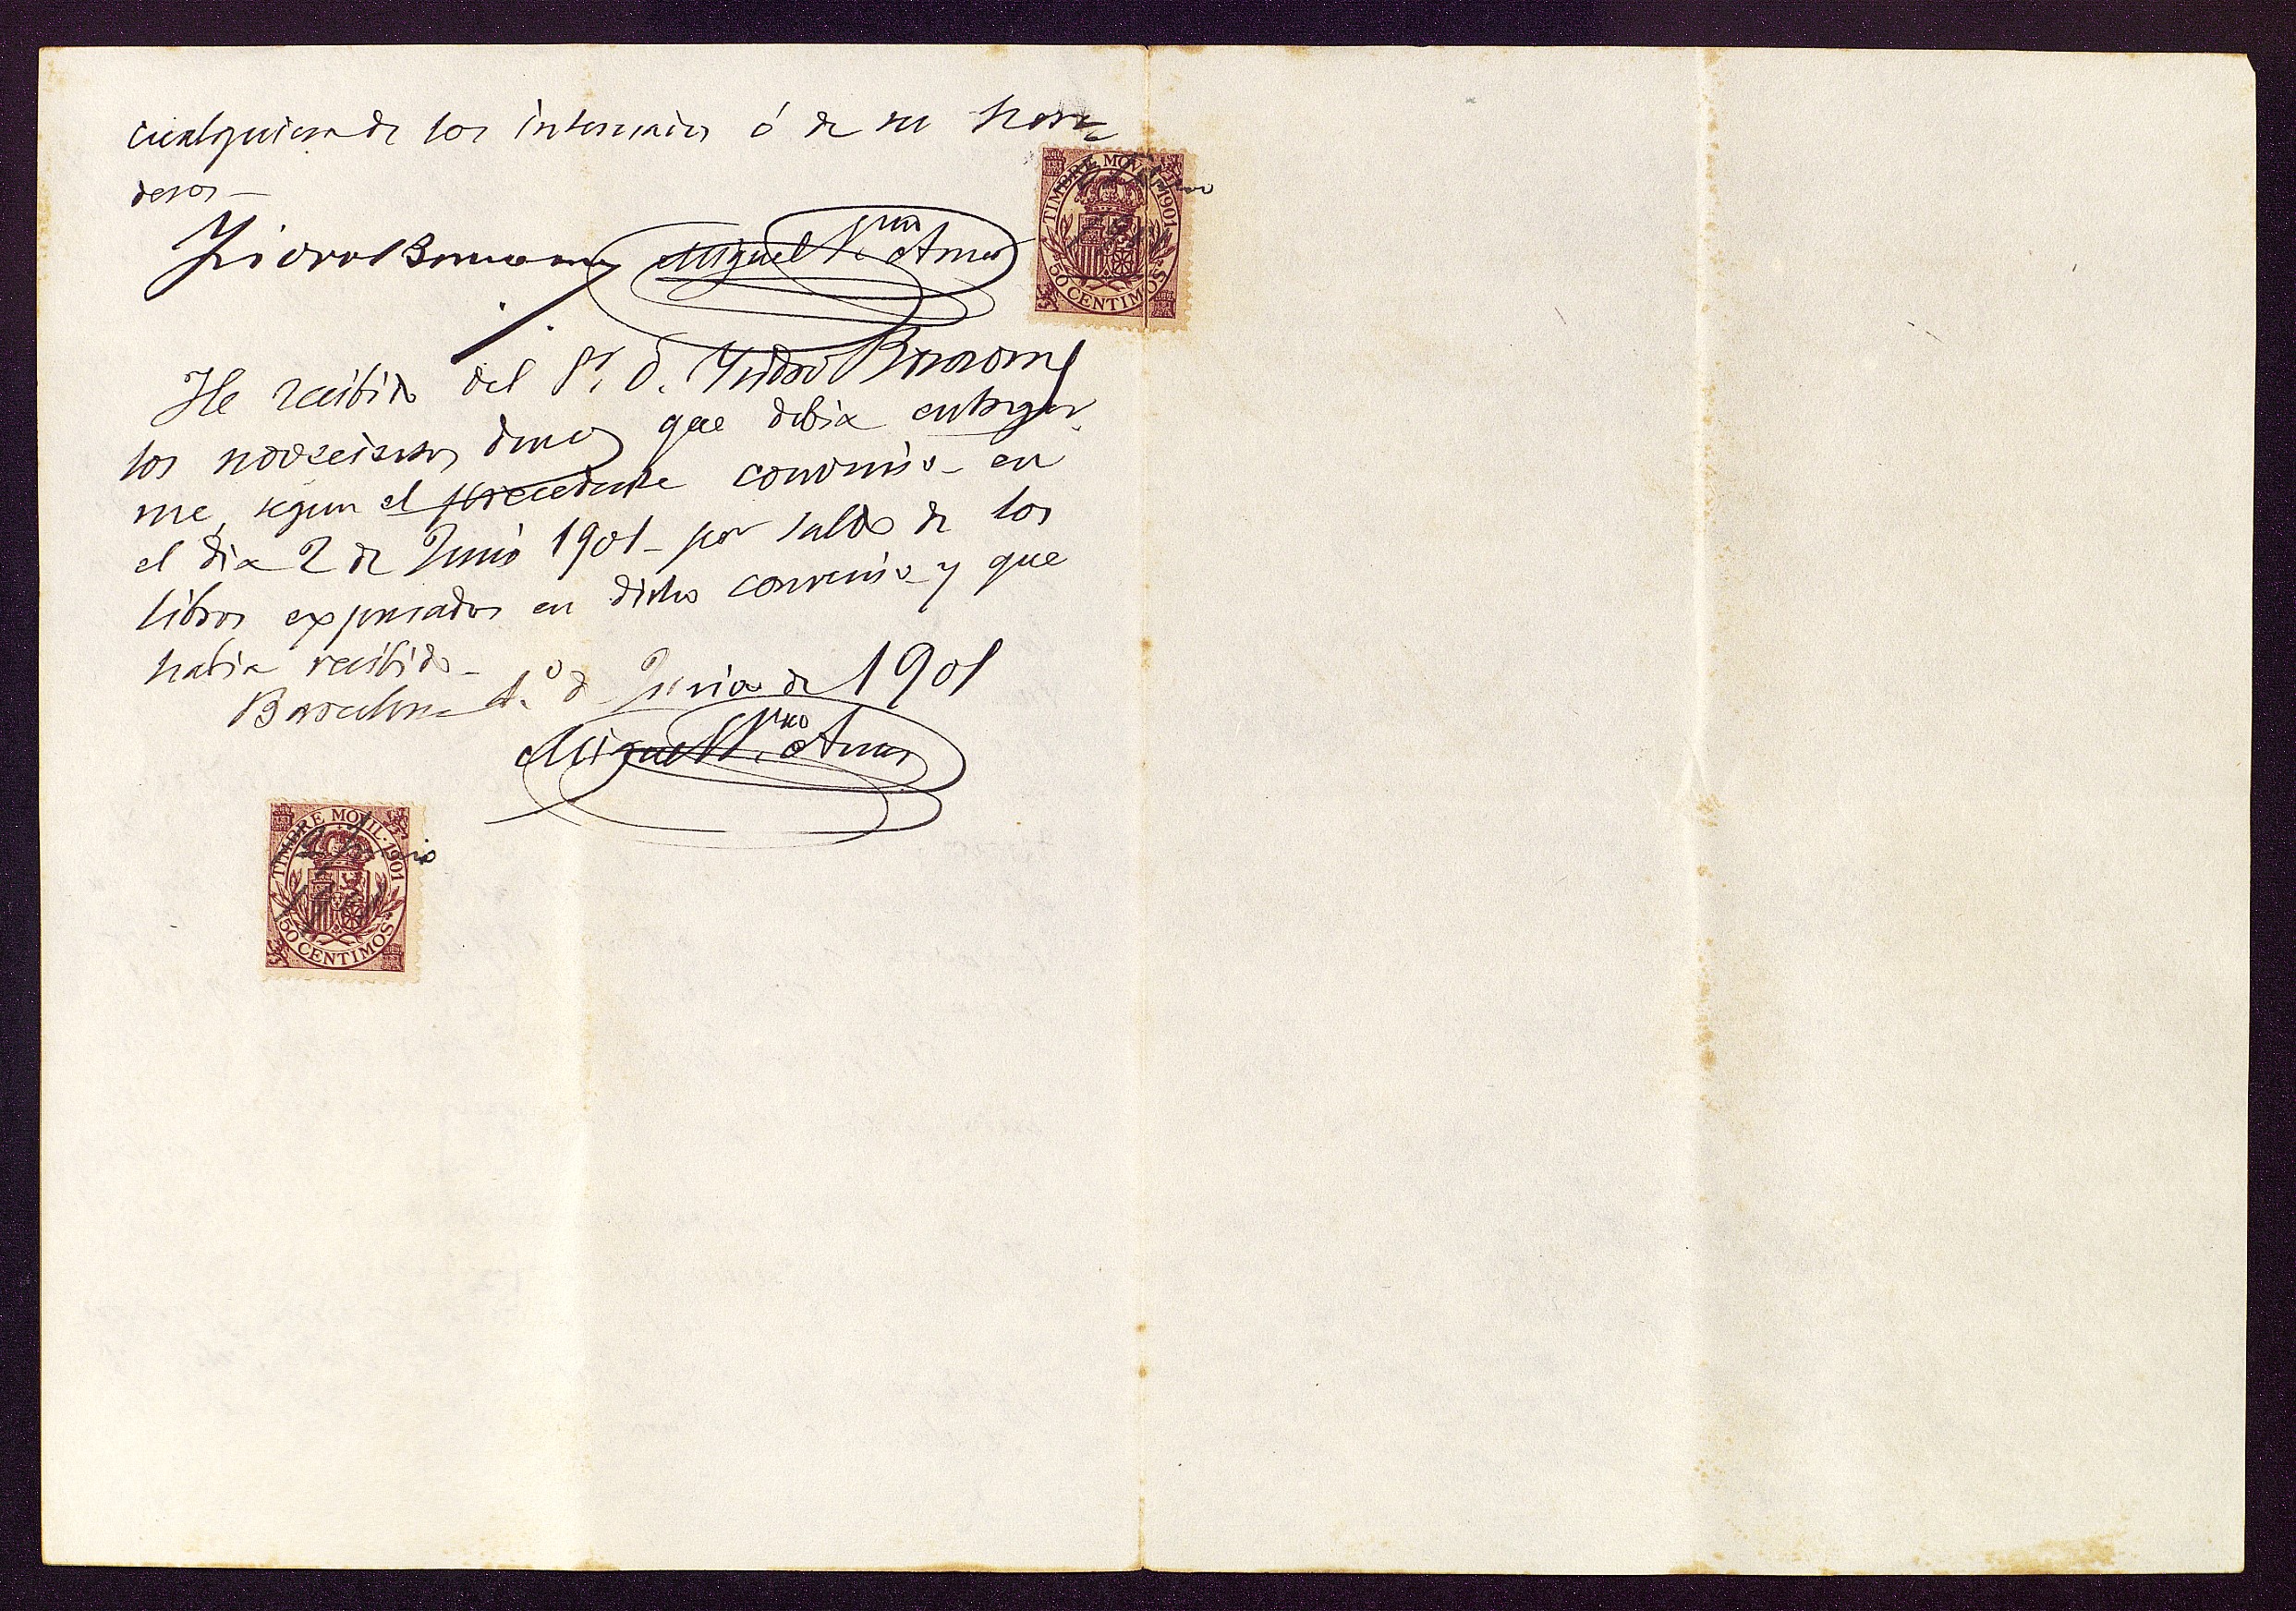 cualquiera de los interesados ó de su here
deros —
Isidro Bonsoms Miguel Vria Amer
TIMBRE MOVIL·1901
50 CENTIMOS
He recibido del Sr. D. Ysidro Bonsoms
los novecientos duros que debia entregar-
me, segun el precedente convenio - en
el dia 2 de Junio 1901 - por saldo de los
libros expresados en dicho convenio y que
habia recibido -
Barcelona 1.º de Junio de 1901
Miguel Amer
TIMBRE MOVIL·1901
Junio
1901
50 CENTIMOS